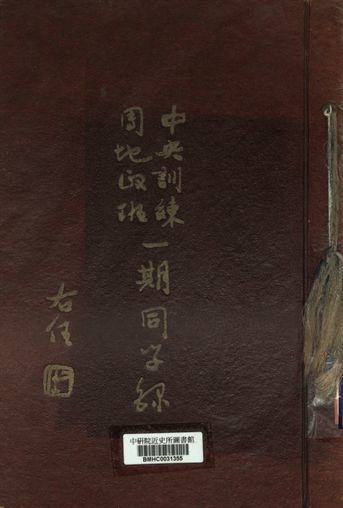 中央訓練
團地政班
一期同學錄
右任
中研院近史所圖書館
BMHC0031355